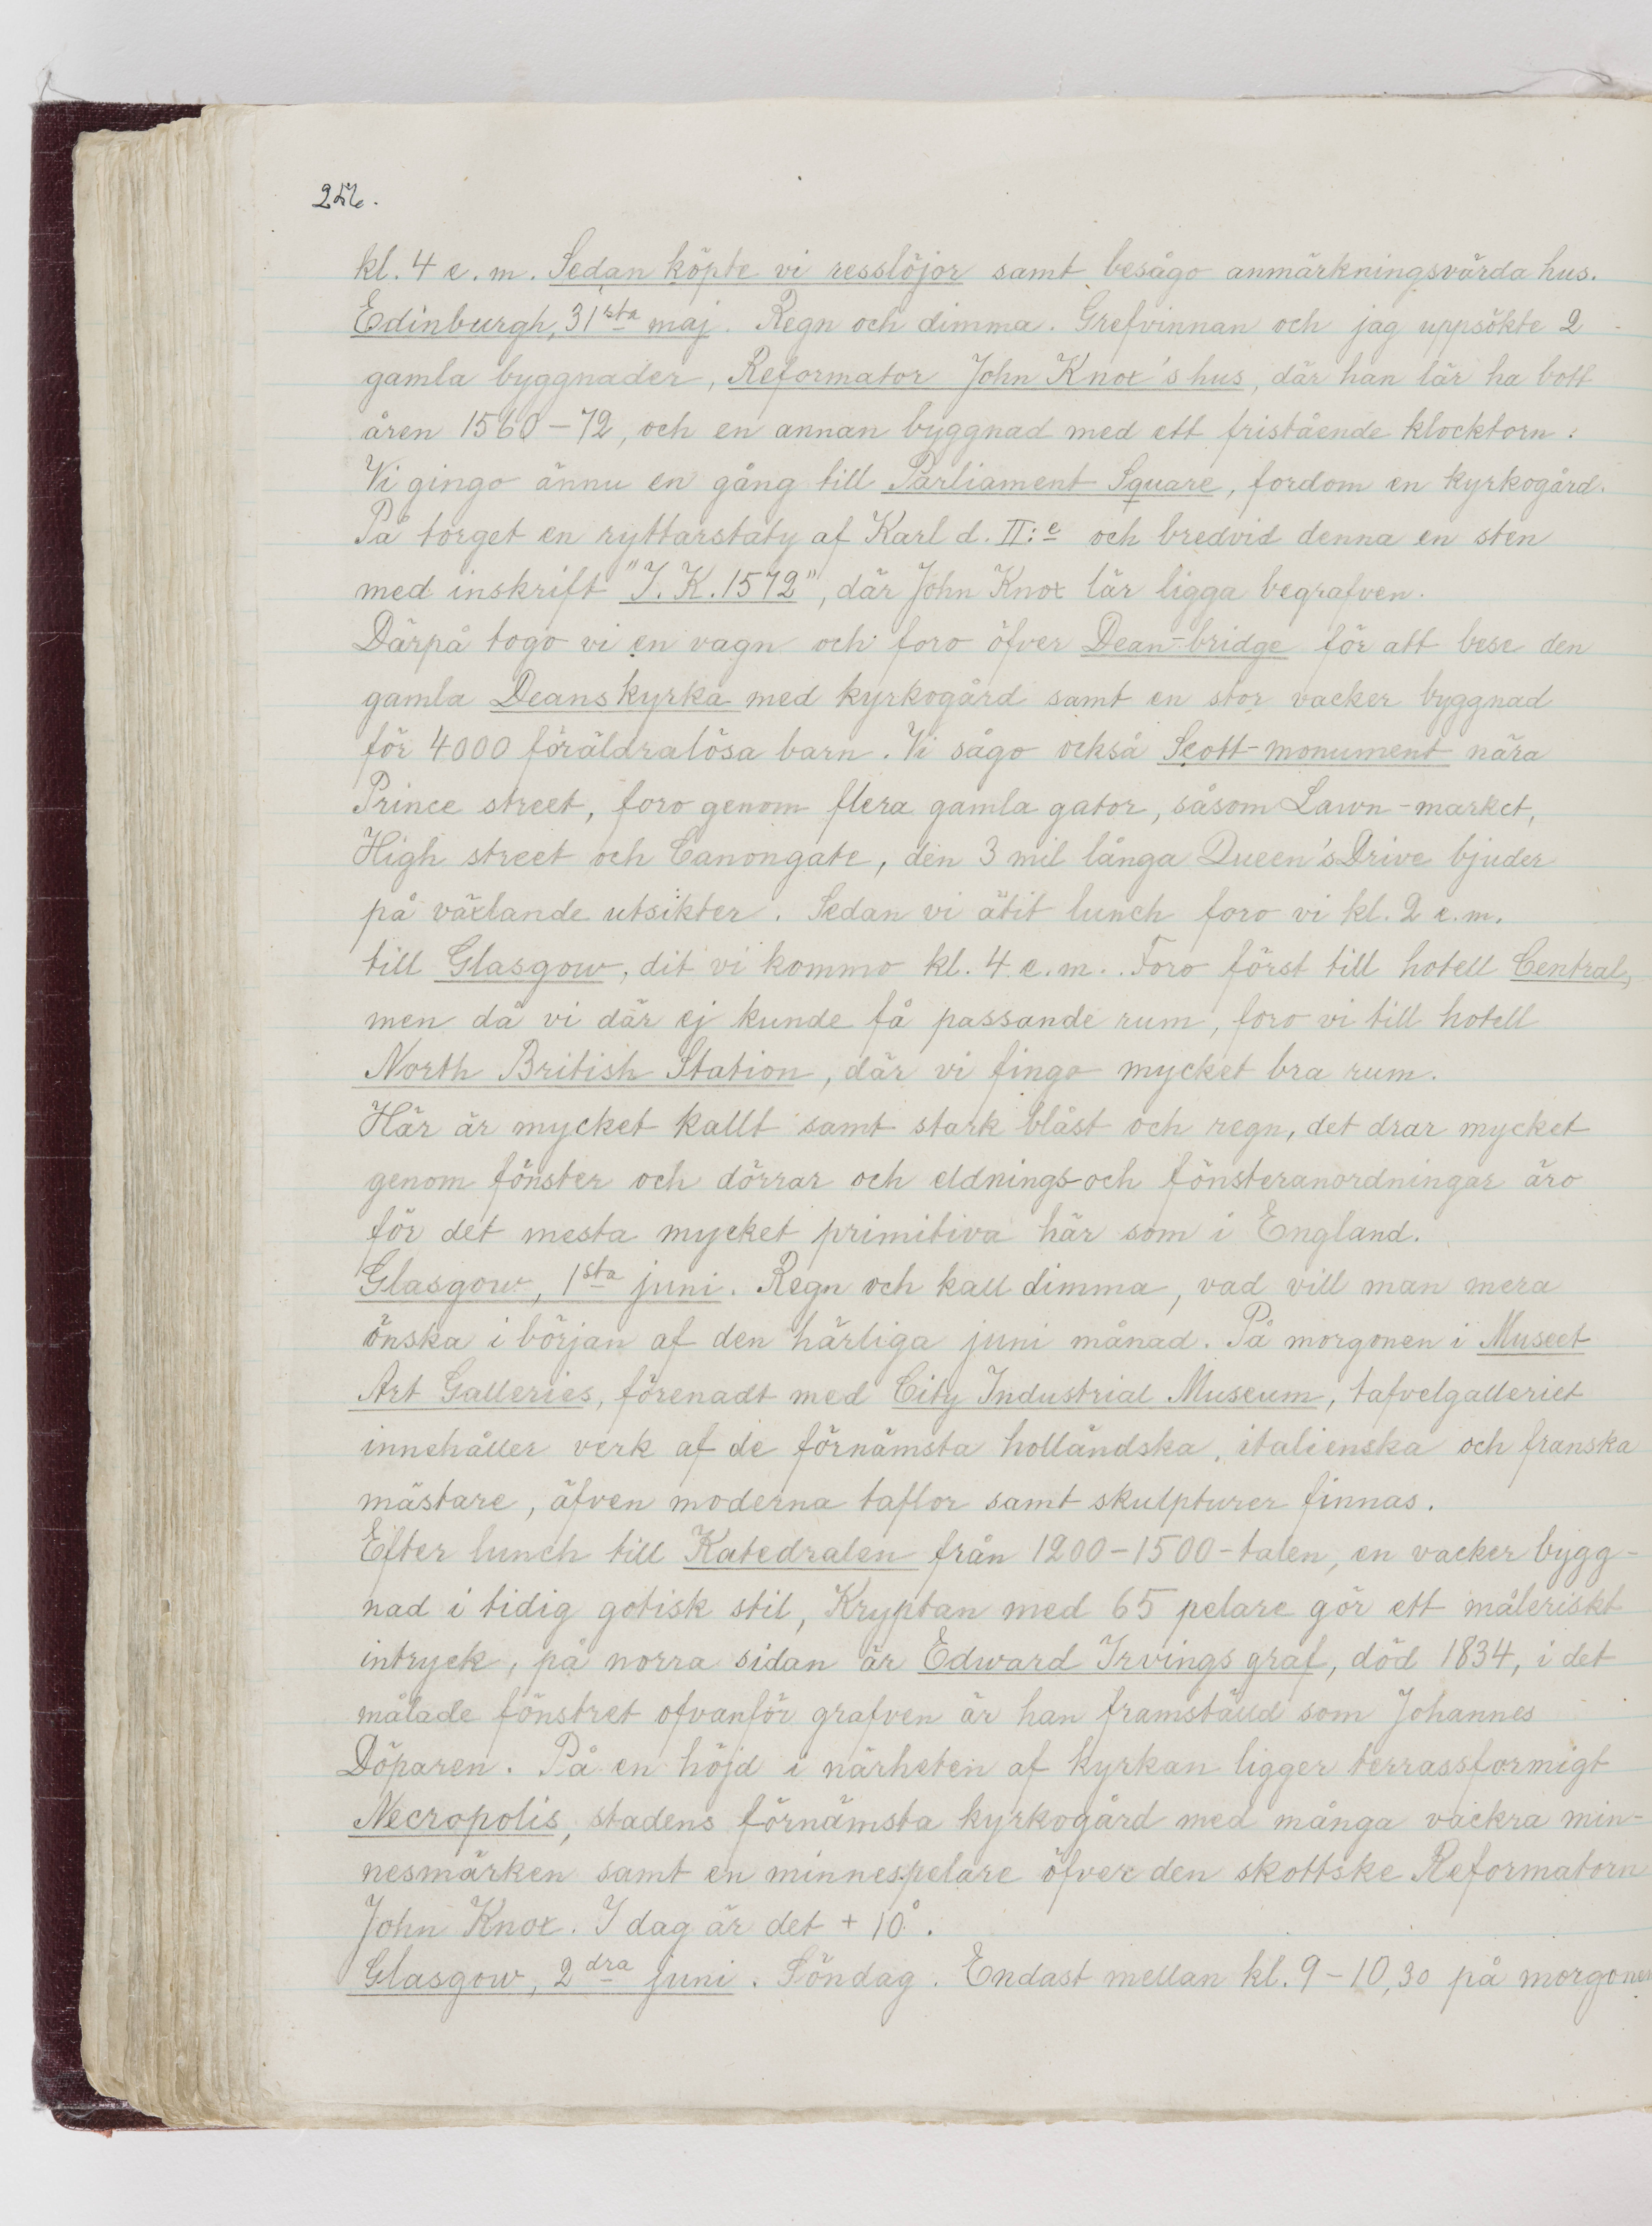 256.
kl. 4 e.m. Sedan köpte vi resslöjor samt besågo anmärkningsvärda hus.
Edinburgh, 31sta maj. Regn och dimma. Grefvinnan och jag uppsökte 2
gamla byggnader, Reformator John Knox's hus, där han lär ha bott
åren 1560-72, och en annan byggnad med ett fristående klocktorn.
Vi gingo ännu en gång till Parliament Square, fordom en kyrkogård.
På torget en ryttarstaty af Karl d. II:e och bredvid denna en sten
med inskrift "J. K. 1572", där John Knox lär ligga begrafven.
Därpå togo vi en vagn och foro öfver Dean-bridge för att bese den
gamla Deans kyrka med kyrkogård samt en stor vacker byggnad
för 4000 föräldralösa barn. Vi sågo också Scott-monument nära
Prince street, foro genom flera gamla gator, såsom Lawn-market,
High street och Canongate, den 3 mil långa Queen's Drive bjuder
på växlande utsikter. Sedan vi ätit lunch foro vi kl. 2 e.m.
till Glasgow, dit vi kommo kl. 4 e.m. Foro först till hotell Central,
men då vi där ej kunde få passande rum, foro vi till hotell
North British Station, där vi fingo mycket bra rum.
Här är mycket kallt samt stark blåst och regn, det drar mycket
genom fönster och dörrar och eldnings-och fönsteranordningar äro
för det mesta mycket primitiva här som i England.
Glasgow, 1sta juni. Regn och kall dimma, vad vill man mera
önska i början af den härliga juni månad. På morgonen i Museet
Art Galleries, förenadt med City Industrial Museum, tafvelgalleriet
innehåller verk af de förnämsta holländska, italienska och franska
mästare, äfven moderna taflor samt skulpturer finnas.
Efter lunch till Katedralen från 1200-1500-talen, en vacker bygg-
nad i tidig gotisk stil, Kryptan med 65 pelare gör ett måleriskt
intryck, på norra sidan är Edward Irvings graf, död 1834, i det
målade fönstret ofvanför grafven är han framställd som Johannes
Döparen. På en höjd i närheten af kyrkan ligger terrassformigt
Necropolis, stadens förnämsta kyrkogård med många vackra min-
nesmärken samt en minnespelare öfver den skottske Reformatorn
John Knox. I dag är det + 10°.
Glasgow, 2dra juni. Söndag. Endast mellan kl. 9-10,30 på morgonen